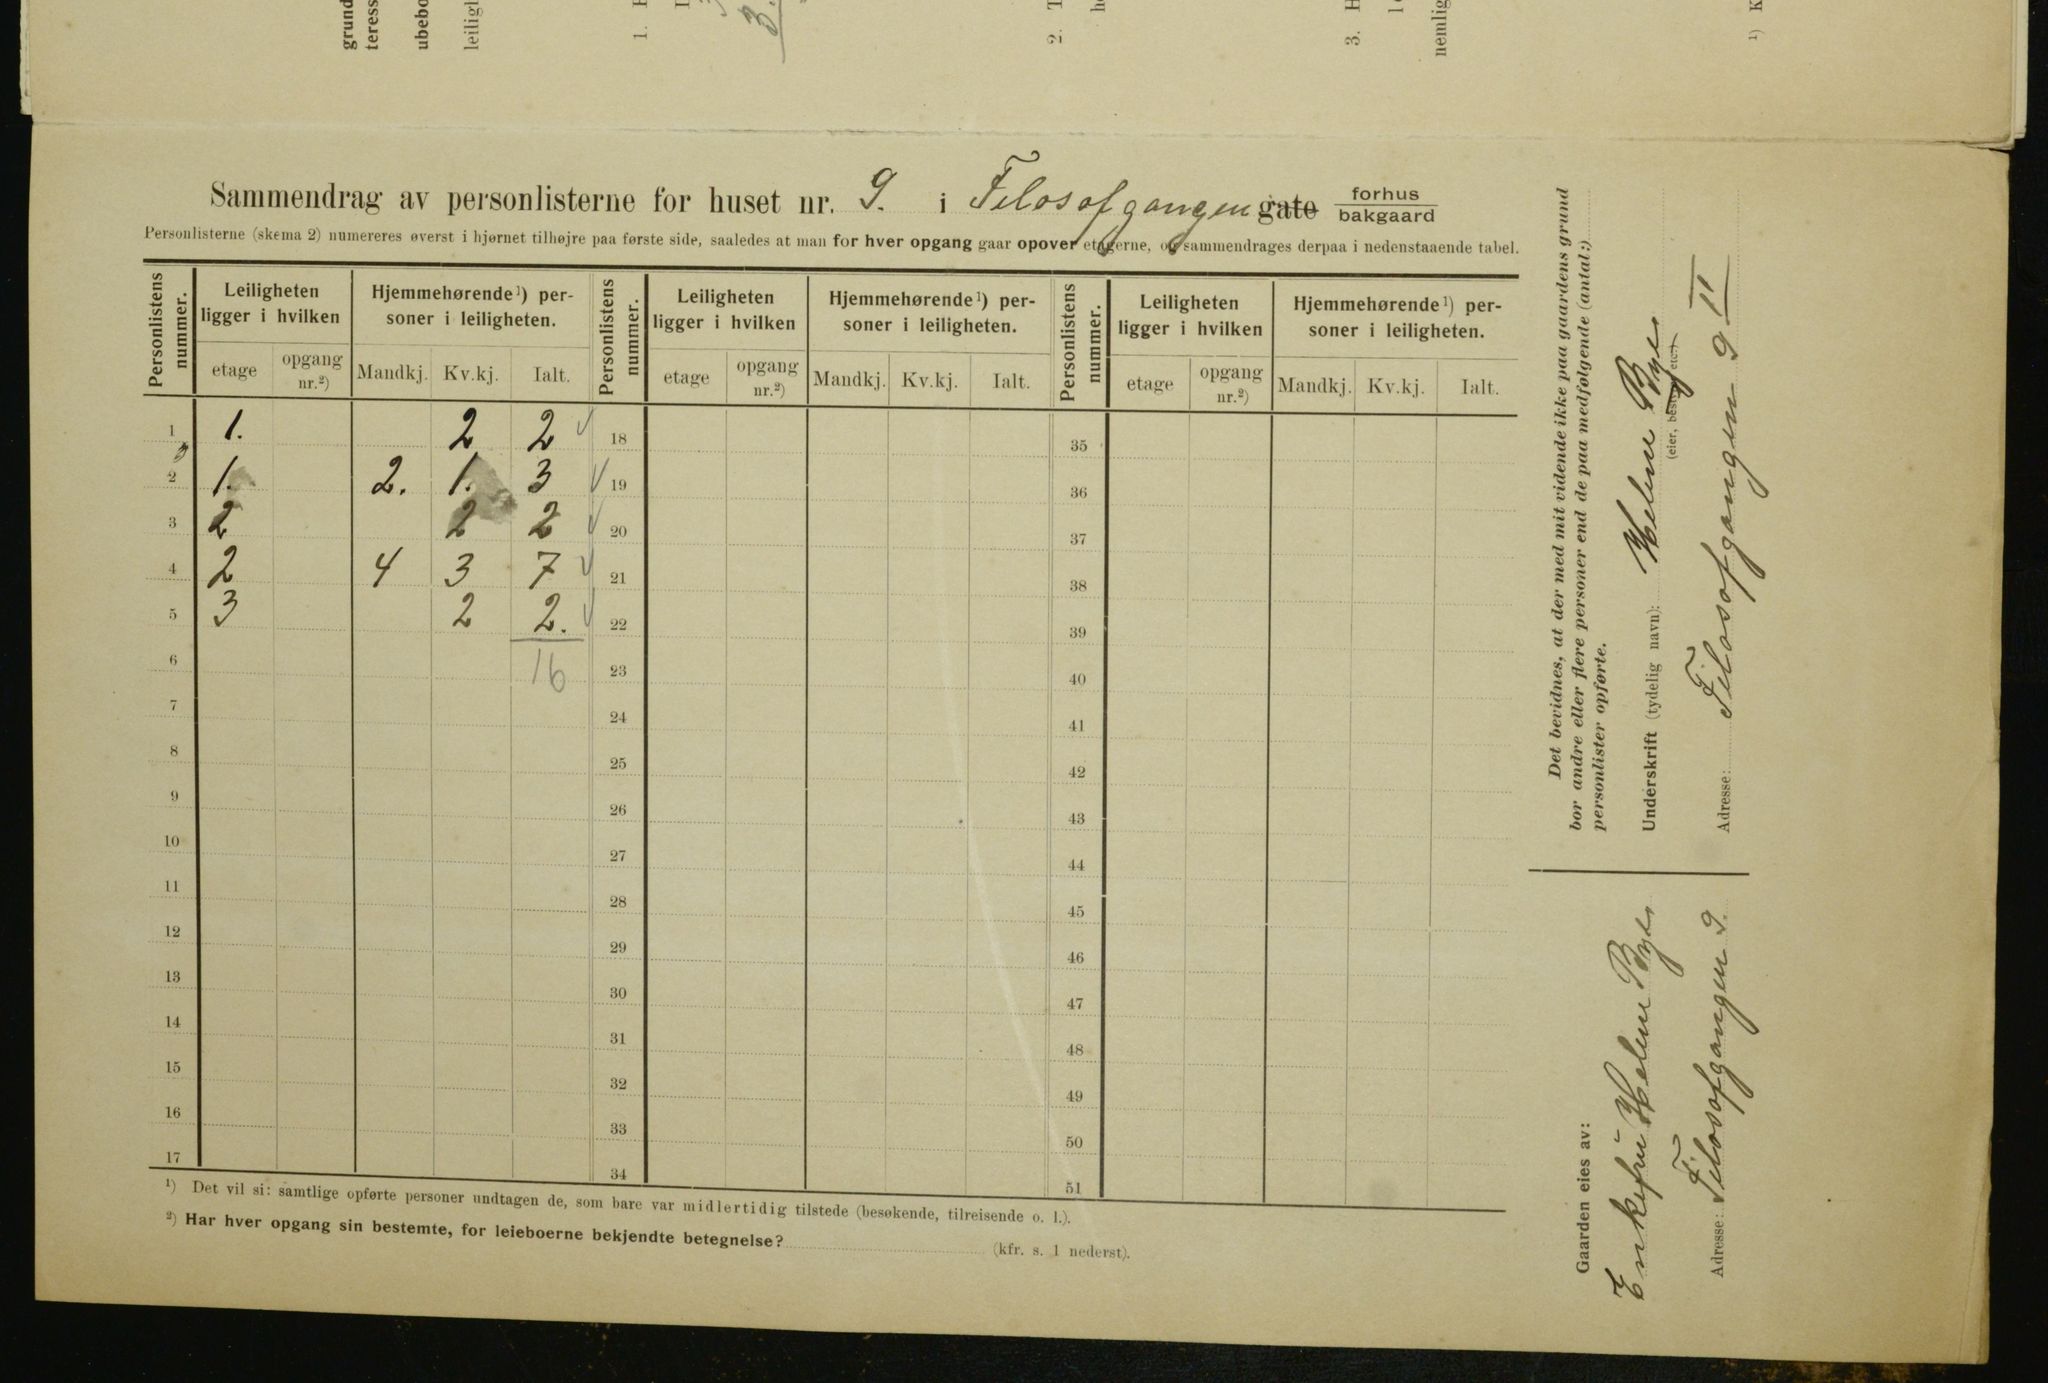 grund
teress
ubebo
leiligh
1. E
3.
2. T
he
3. H
nemlig
1) K
Sammendrag av personlisterne for huset nr. 9. i Filosofgangen gate forhus bakgaard
Personlisterne (skema 2) numereres øverst i hjørnet tilhøjre paa første side, saaledes at man for hver opgang gaar opover etagerne, og sammendrages derpaa i nedenstaaende tabel.
Personlistens nummer. Leiligheten ligger i hvilken Hjemmehørende 1) personer i leiligheten. Personlistens nummer. Leiligheten ligger i hvilken Hjemmehørende 1) personer i leiligheten. Personlistens nummer. Leiligheten ligger i hvilken Hjemmehørende 1) personer i leiligheten.
etage opgang nr.2) Mandkj. Kv.kj. Ialt. etage opgang nr.2) Mandkj. Kv.kj. Ialt. etage opgang nr.2) Mandkj. Kv.kj. Ialt.
1 1. 2 2 18 35
2 1. 2. 1. 3 19 36
3 2 2 2 20 37
4 2 4 3 7 21 38
5 3 2 2. 22 39
6 16 23 40
7 24 41
8 25 42
9 26 43
10 27 44
11 28 45
12 29 46
13 30 47
14 31 48
15 32 49
16 33 50
17 34 51
1) Det vil si: samtlige opførte personer undtagen de, som bare var midlertidig tilstede (besøkende, tilreisende o. l.).
2) Har hver opgang sin bestemte, for leieboerne bekjendte betegnelse? (kfr. s. 1 nederst).
Det bevidnes, at der med mit vidende ikke paa gaardens grund
bor andre eller flere personer end de paa medfølgende (antal:)
personlister opførte.
Underskrift (tydelig navn): Helene Bye
(eier, bestyrer etc.)
Adresse: Filosofgangen 9 II
Gaarden eies av:
Enkefru Helene Bye
Adresse: Filosofgangen 9.